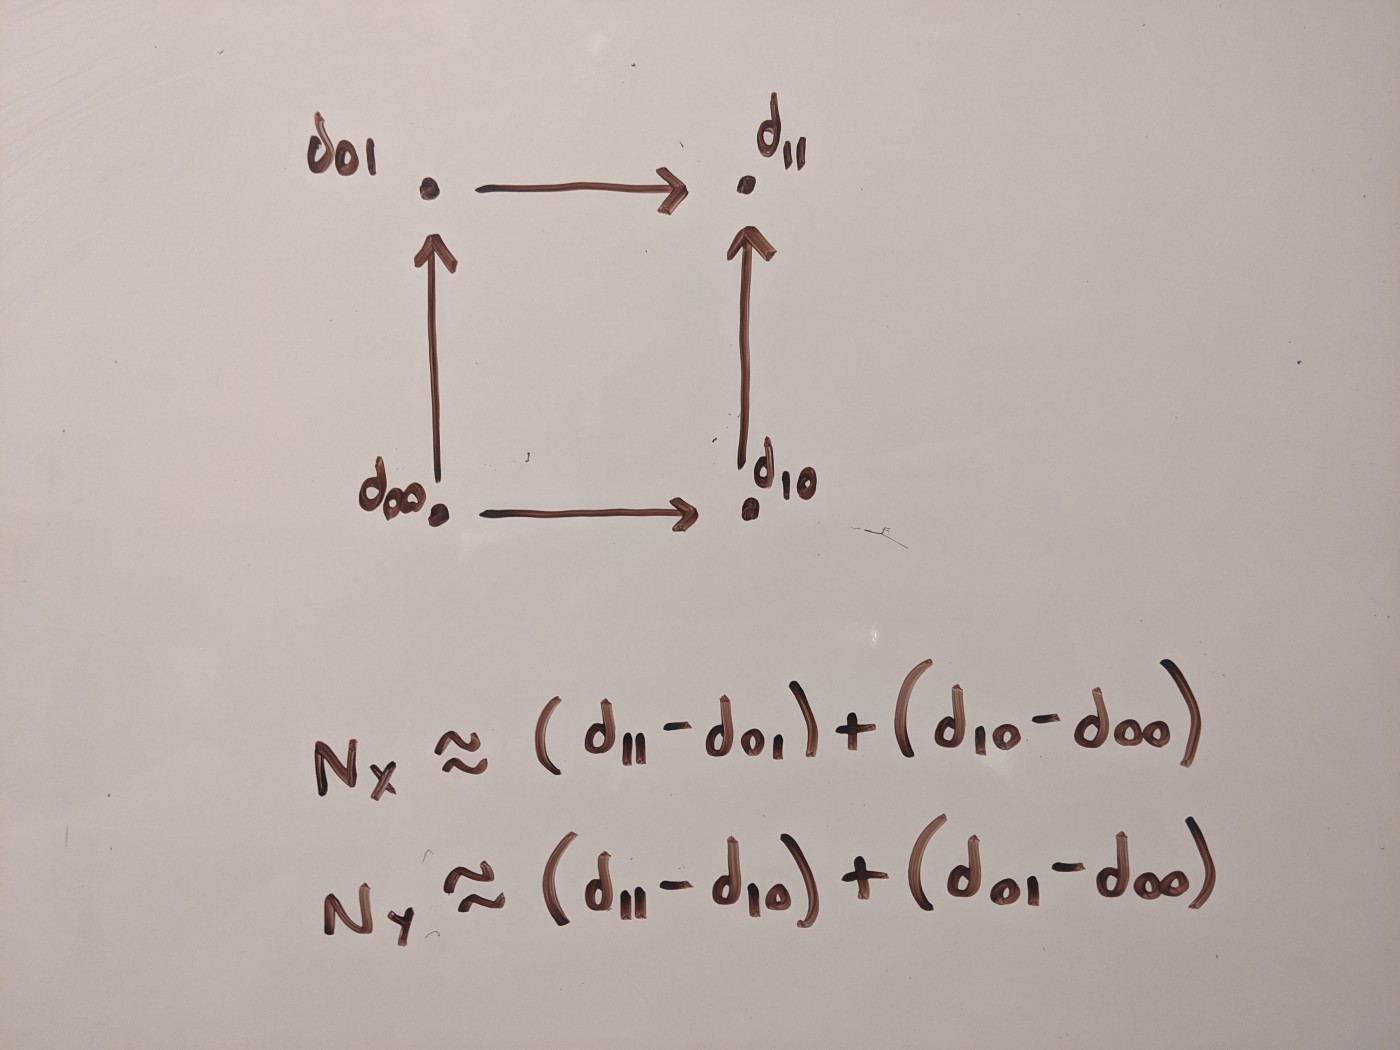 d01 d11
d00 d10
Nx ≈ (d11 - d01) + (d10 - d00)
Ny ≈ (d11 - d10) + (d01 - d00)